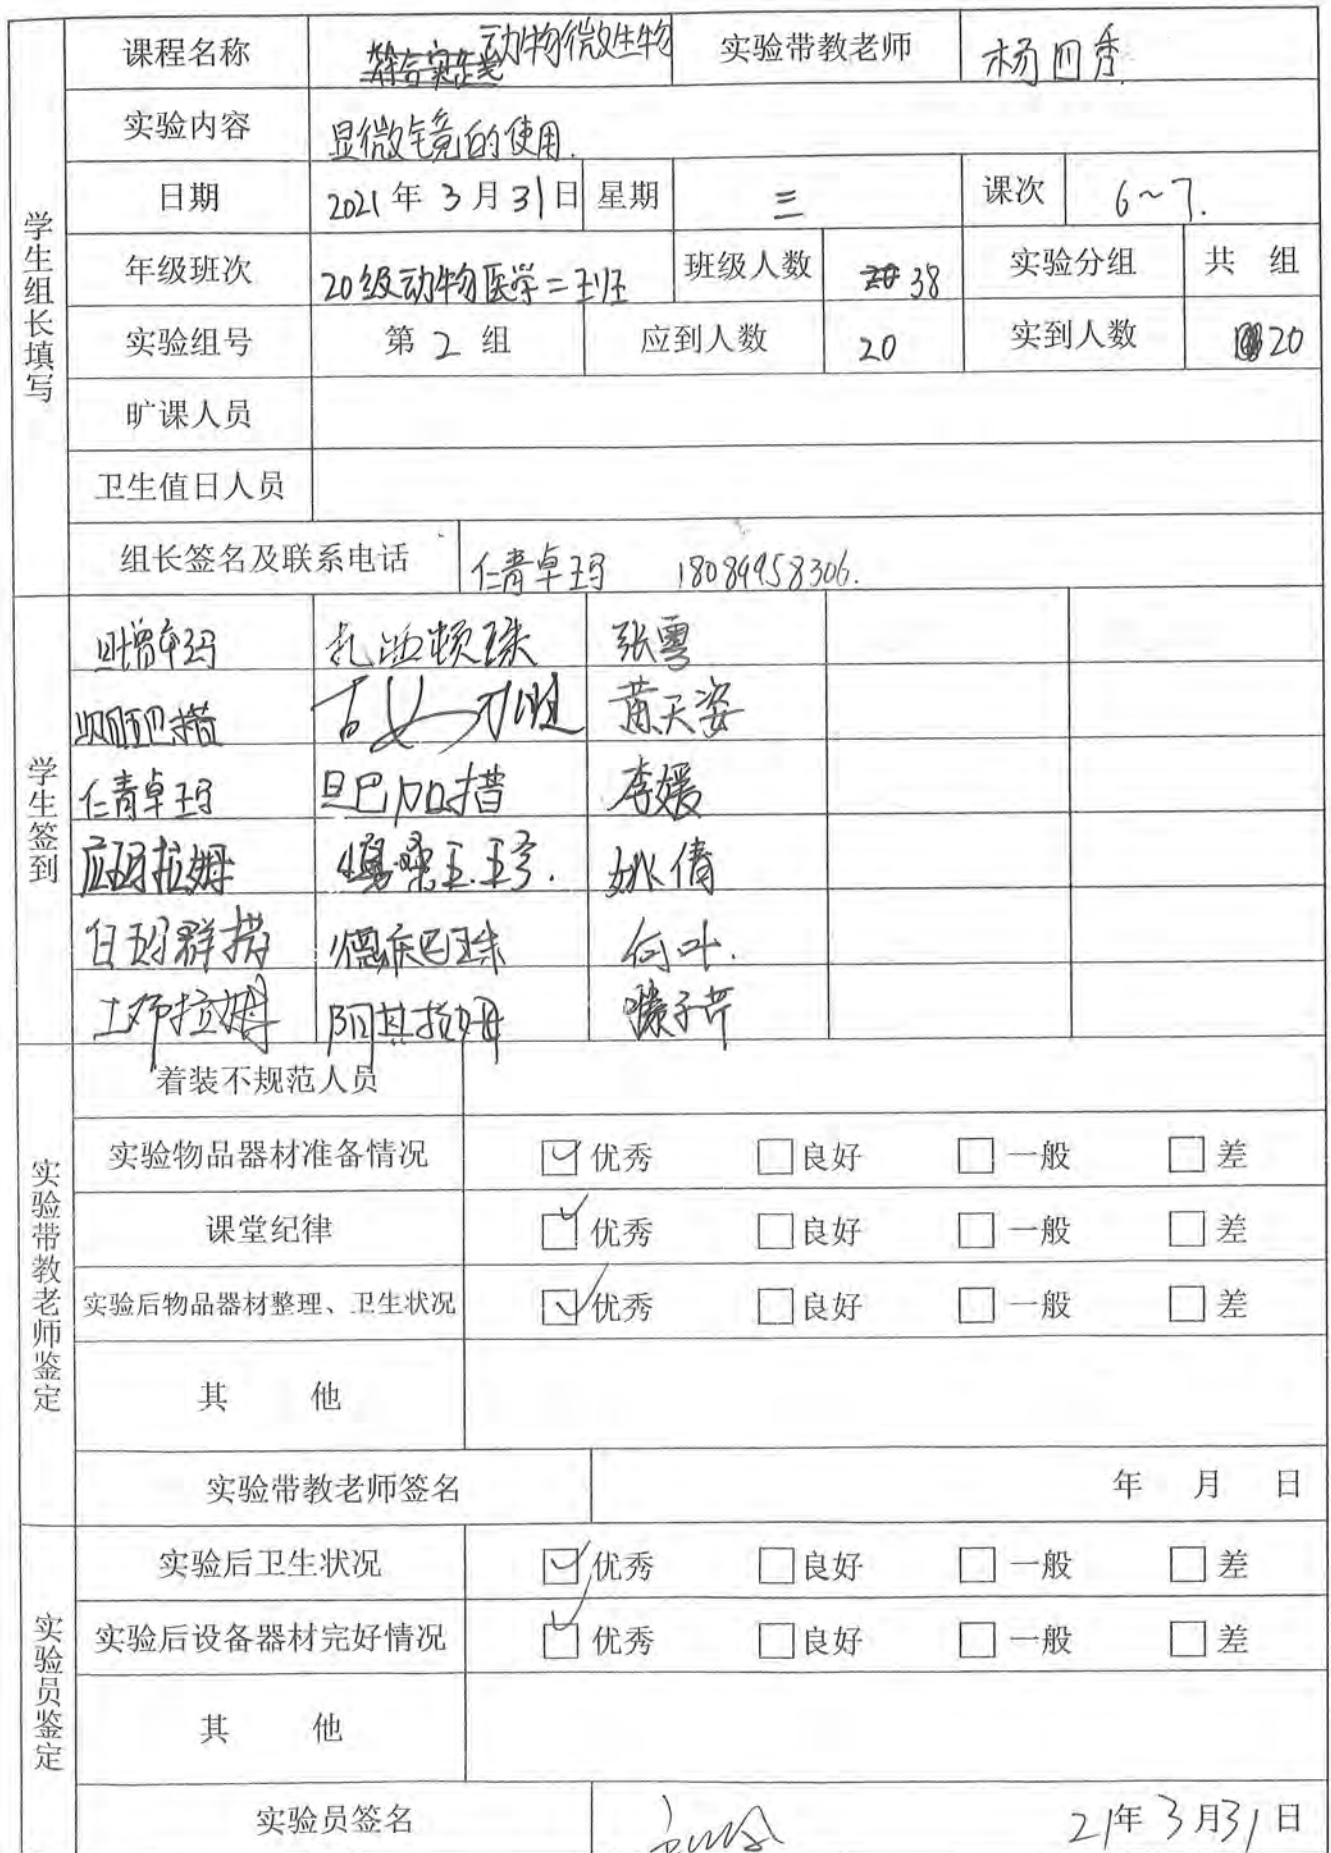 课程名称 动物微生物 实验带教老师 杨四秀
实验内容 显微镜的使用.
日期 2021年3月31日 星期 三 课次 6~7.
年级班次 20级动物医学二班 班级人数 38 实验分组 共 组
实验组号 第2组 应到人数 20 实到人数 20
旷课人员
卫生值日人员
组长签名及联系电话 仁青卓玛 18089958306.
学生组长填写
扎西顿珠 张雪
黄天姿
仁青卓玛 旦巴加措 李媛
拉姆 姚倩
白玛群措 德庆巴珠 何叶.
拉姆 阿其拉姆 滕子芹
学生签到
着装不规范人员
实验物品器材准备情况 优秀 良好 一般 差
课堂纪律 优秀 良好 一般 差
实验后物品器材整理、卫生状况 优秀 良好 一般 差
其 他
实验带教老师签名 年 月 日
实验带教老师鉴定
实验后卫生状况 优秀 良好 一般 差
实验后设备器材完好情况 优秀 良好 一般 差
其 他
实验员签名 21年3月31日
实验员鉴定